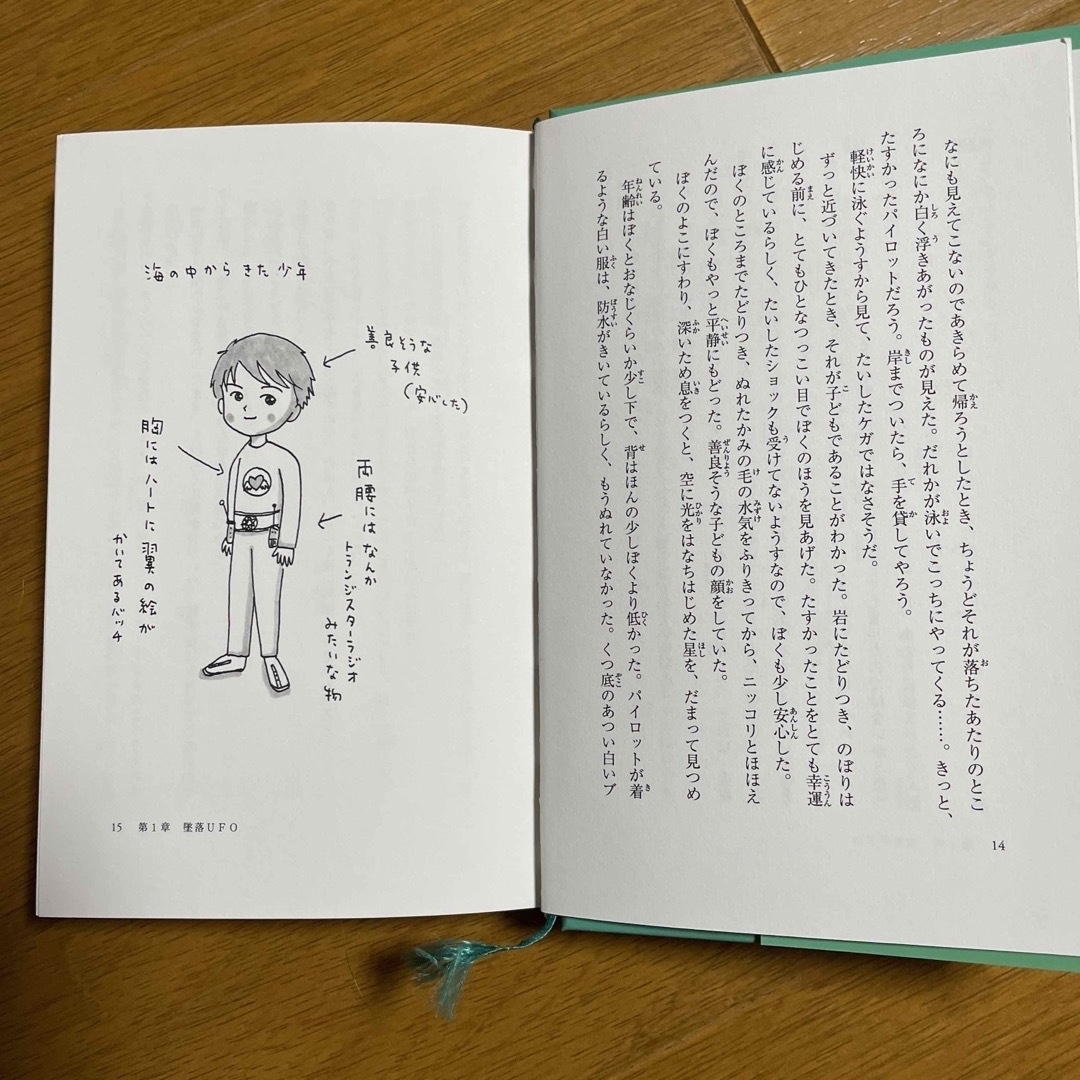 なにも見えてこないのであきらめて帰ろうとしたとき、ちょうどそれが落ちたあたりのとこ
ろになにか白く浮きあがったものが見えた。だれかが泳いでこっちにやってくる……。きっと、
たすかったパイロットだろう。岸までついたら、手を貸してやろう。
軽快に泳ぐようすから見て、たいしたケガではなさそうだ。
ずっと近づいてきたとき、それが子どもであることがわかった。岩にたどりつき、のぼりは
じめる前に、とてもひとなつっこい目でぼくのほうを見あげた。たすかったことをとても幸運
に感じているらしく、たいしたショックも受けてないようすなので、ぼくも少し安心した。
ぼくのところまでたどりつき、ぬれたかみの毛の水気をふりきってから、ニッコリとほほえ
んだので、ぼくもやっと平静にもどった。善良そうな子どもの顔をしていた。
ぼくのよこにすわり、深いため息をつくと、空に光をはなちはじめた星を、だまって見つめ
ている。
年齢はぼくとおなじくらいか少し下で、背はほんの少しぼくより低かった。パイロットが着
るような白い服は、防水がきいているらしく、もうぬれていなかった。くつ底のあつい白いブ
14
海の中からきた少年
善良そうな
子供
(安心した)
両腰にはなんか
トランジスターラジオ
みたいな物
胸にはハートに翼の絵が
かいてあるバッチ
15 第1章 墜落UFO